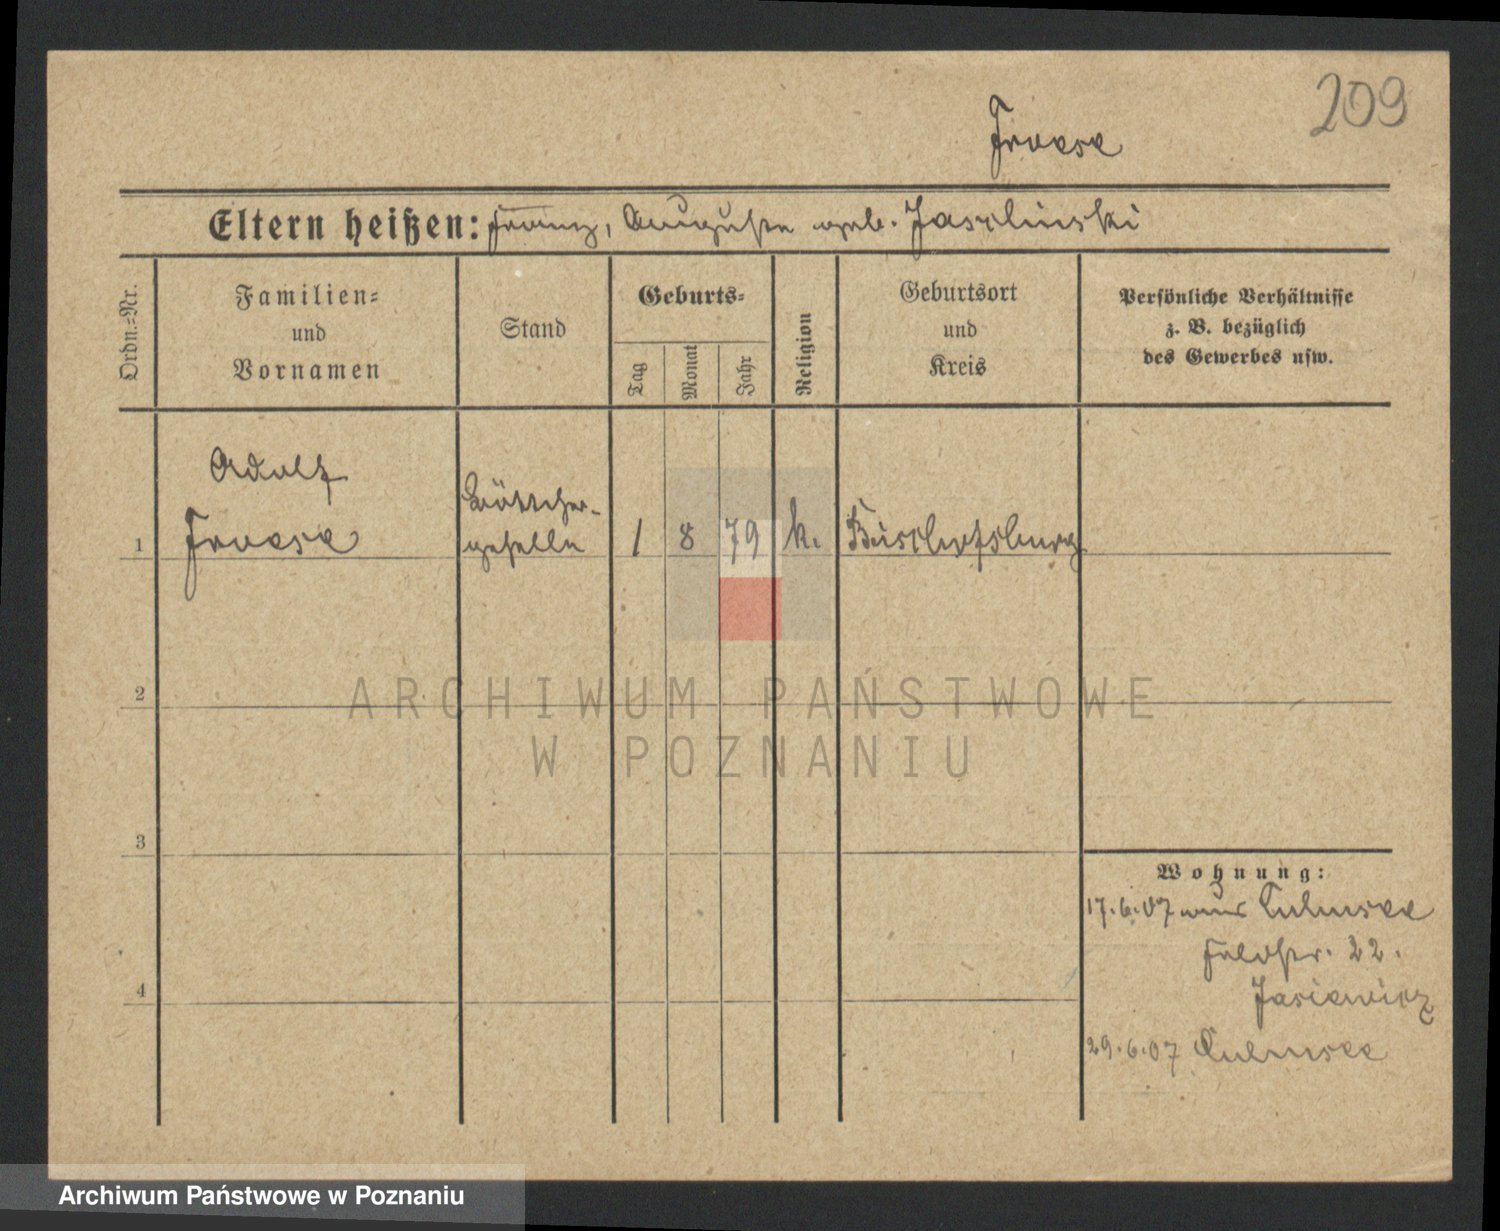 209
Froese
Eltern heißen: Franz, Auguste geb. Jaschinski
Ordn.=Nr.
Familien=
und
Vornamen
Stand
Geburts=
Tag
Monat
Jahr
Religion
Geburtsort
und
Kreis
Persönliche Verhältnisse
z. B. bezüglich
des Gewerbes usw.
Adolf
Böttcher-
1 Froese geselle 1 8 79 k. Bischofsburg
2
ARCHIWUM PAŃSTWOWE
W POZNANIU
3
Wohnung:
17.6.07 aus Culmsee
Feldstr. 22.
Jasiewicz
4
29.6.07 Culmsee
Archiwum Państwowe w Poznaniu